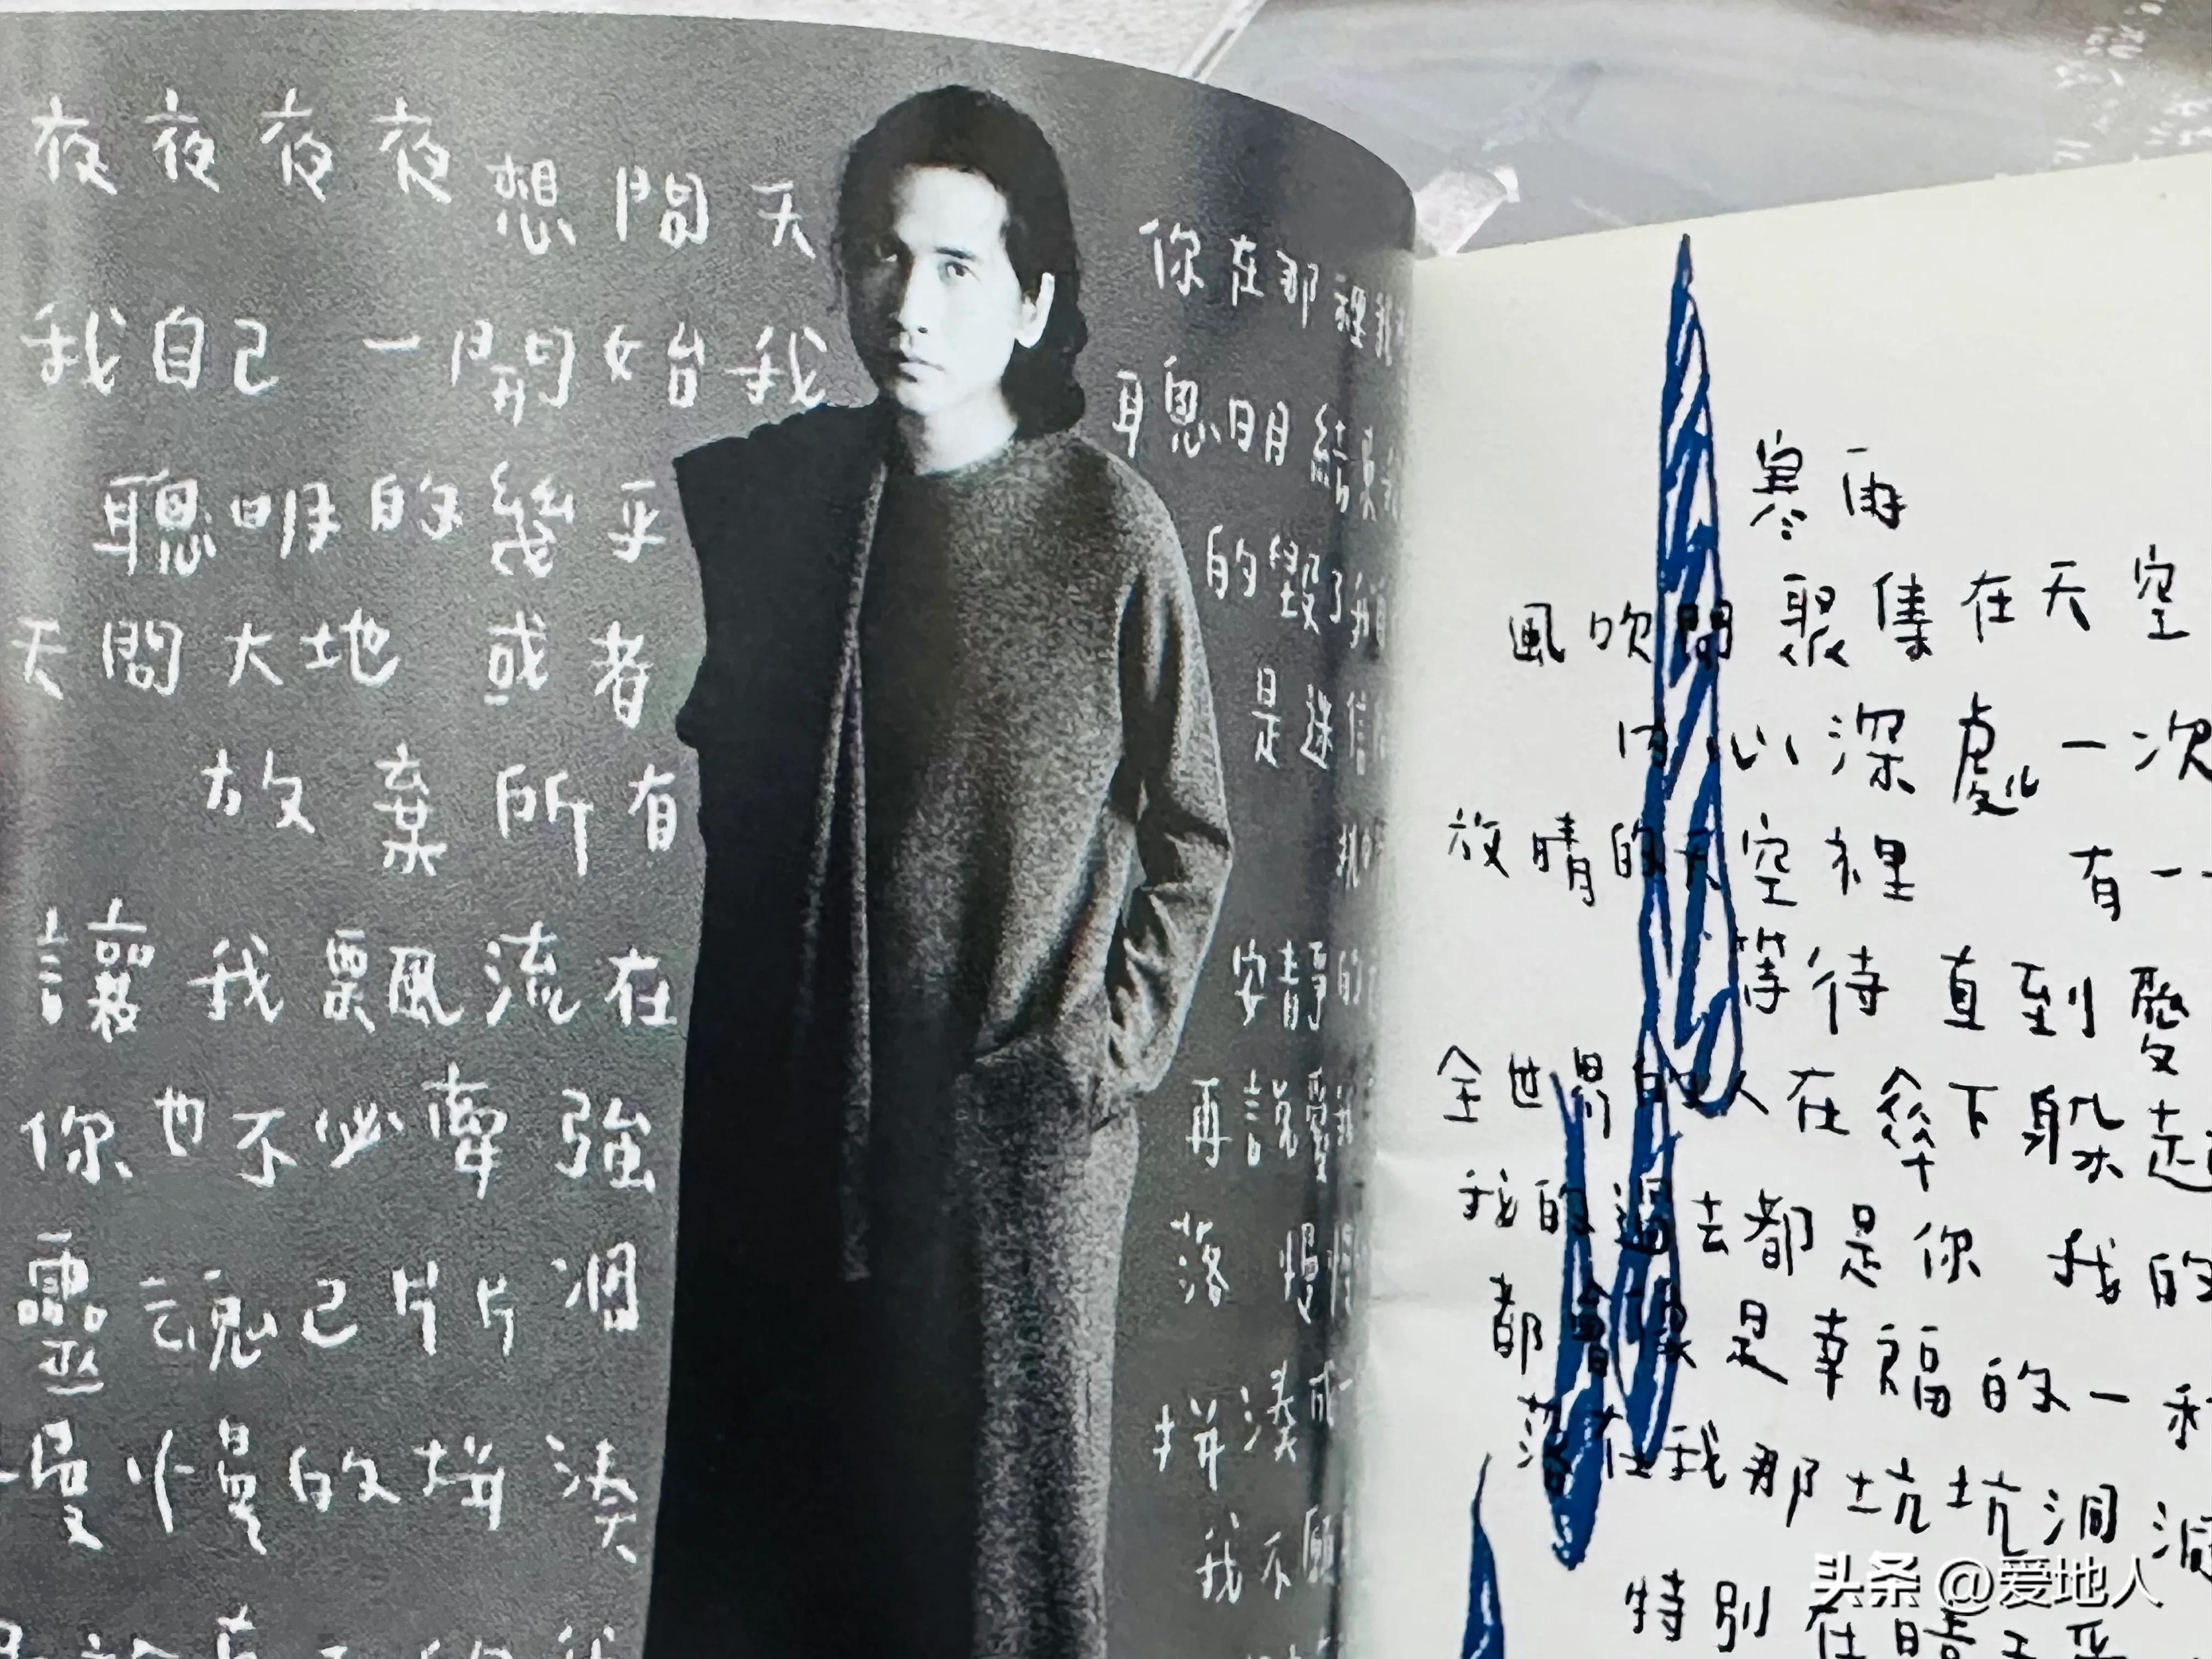 夜夜夜夜 想問天
我自己 一開始我
聰明的幾乎
天問大地 或者
放棄所有
讓我飄流在
你也不必牽強
靈魂已片片凋
慢慢的拼湊
你在那裡我
聰明結束
的毀了
是迷信
安靜的
再說愛我
落 慢慢
拼湊成
我不願
寒雨
聚集在天空
風吹開
內心深處 一次
放晴的天空裡 有一
等待 直到愛
全世界的人在傘下躲起
我的過去都是你 我的
都會像是幸福的一種
落在我那坑坑洞洞
特別在晴天
头条 @爱地人